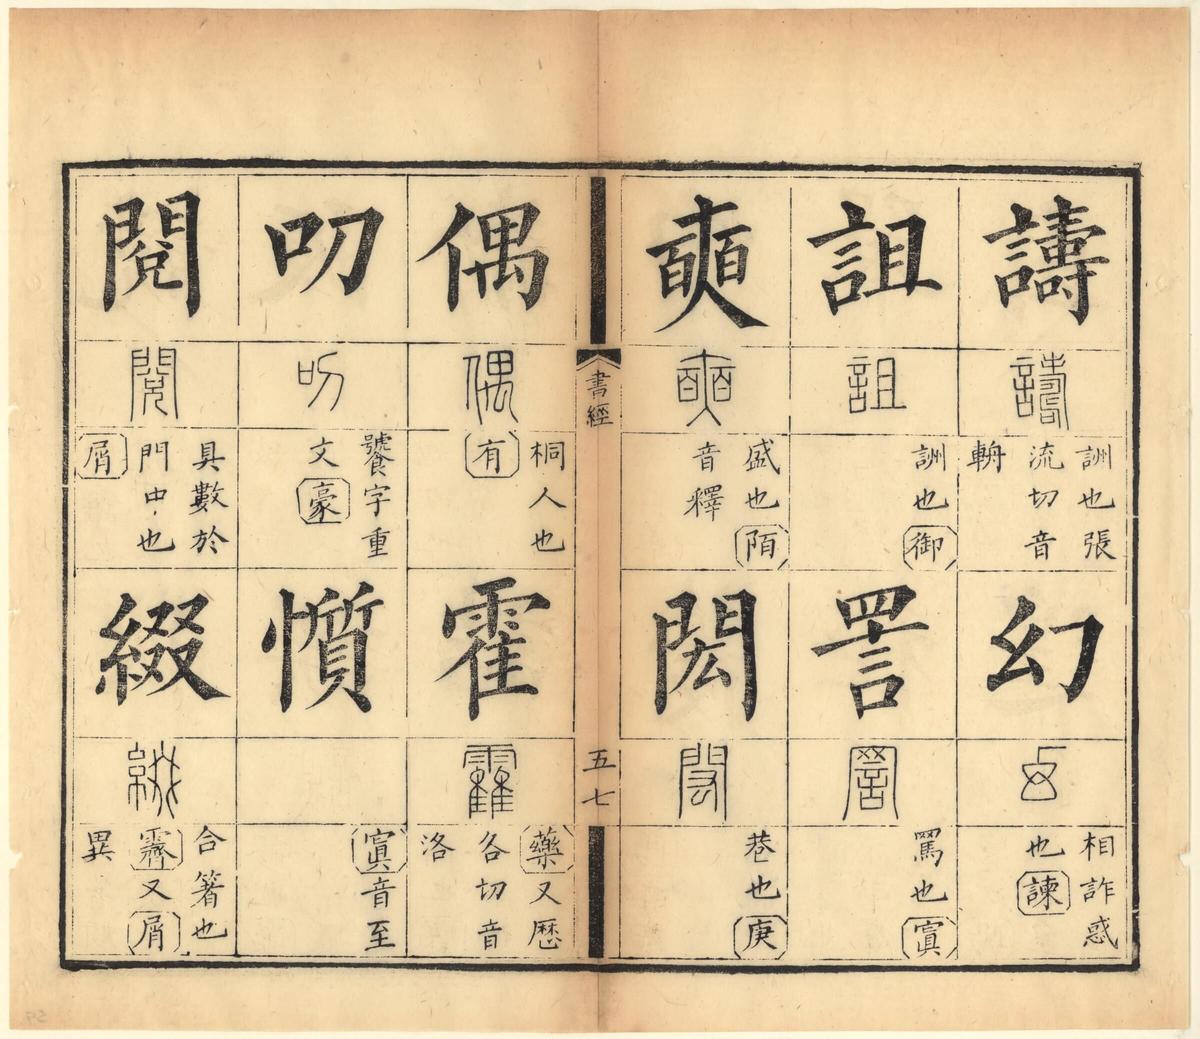 譸
譸
詶也張
流切音
輈
幻
幻
相詐惑
也諫
詛
詛
詶也御
詈
詈
罵也寘
奭
奭
盛也陌
音釋
閎
閎
巷也庚
書經
五七
偶
偶
桐人也
有
霍
霍
藥又歷
各切音
洛
叨
叨
饕字重
文豪
懫
寘音至
閱
閱
具數於
門中也
屑
綴
綴
合箸也
霽又屑
異